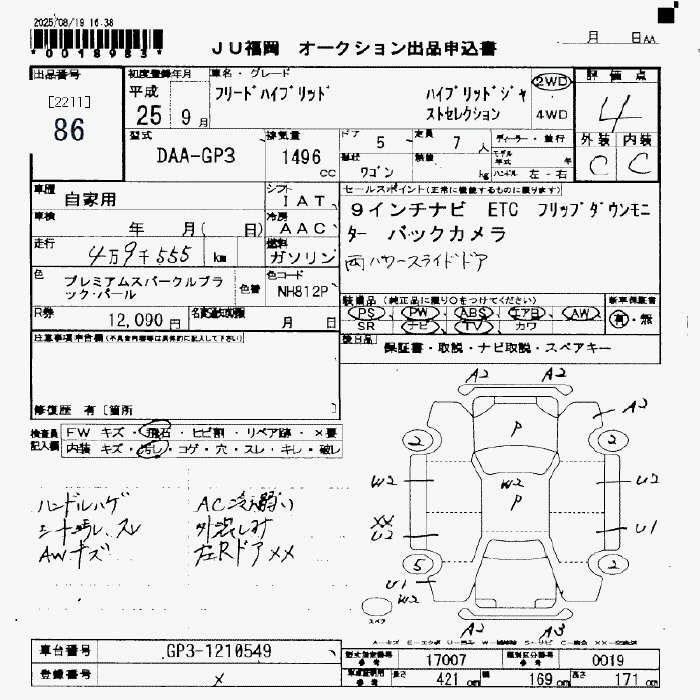 2025/08/19 16.38
*0018983*
JU福岡 オークション出品申込書
月 日AA
出品番号
[2211]
86
初度登録年月
平成
25 9月
車名・グレード
フリードハイブリッド
ハイブリッドジャ
ストセレクション
2WD
4WD
評価点
4
外装 内装
C C
型式
DAA-GP3
排気量
1496
cc
ドア 5
定員 7 人
形状 ワゴン
積載 kg
ディーラー・並行
モデル年式 年
ハンドル 左・右
車歴
自家用
シフト
IAT
車検
年 月( 日)
冷房
AAC
走行
4万9千555 km
燃料
ガソリン
色
プレミアムスパークルブラ
ック・パール
色替
色コード
NH812P
R券
12,090円
名変期限
月 日
セールスポイント(正常に機能するものに限ります)
9インチナビ ETC フリップダウンモニ
ター バックカメラ
両パワースライドドア
装備品(純正品に限り○をつけてください)
PS PW ABS エアB AW
SR ナビ TV カワ
新車保証書
有・無
後日品
保証書・取説・ナビ取説・スペアキー
注意事項申告欄(不具合内容等は具体的に記入して下さい)
修復歴 有[箇所 ]
検査員
記入欄
FW キズ・飛石・ヒビ割・リペア跡・×要
内装 キズ・汚し・コゲ・穴・スレ・キレ・破レ
ハンドルハゲ
シート汚レ、スレ
AWキズ
AC冷え弱い
外装しみ
左Rドア××
A2 A2
A2
2 2
P
W2
P
W2
U2
××
U2
U1
5 2
U1
W2
A2 A3
スペア
車台番号
GP3-1210549
登録番号
×
型式指定番号
参考
17007
類別区分番号
参考
0019
車両諸元
参考
長さ 421 cm
幅 169 cm
高さ 171 cm